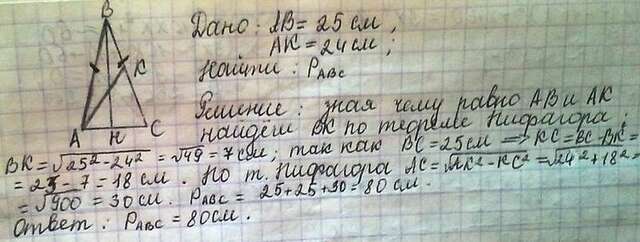 B
K
A
H
C
Дано: AB = 25 см,
AK = 24 см;
Найти: P_ABC
Решение: зная чему равно AB и AK
найдём BK по теореме Пифагора;
BK = √25²-24² = √49 = 7 см; так как BC = 25 см ⇒ KC = BC - BK =
= 25 - 7 = 18 см. По т. Пифагора AC = √AK² - KC² = √24² + 18² =
= √900 = 30 см. P_ABC = 25 + 25 + 30 = 80 см.
Ответ: P_ABC = 80 см.